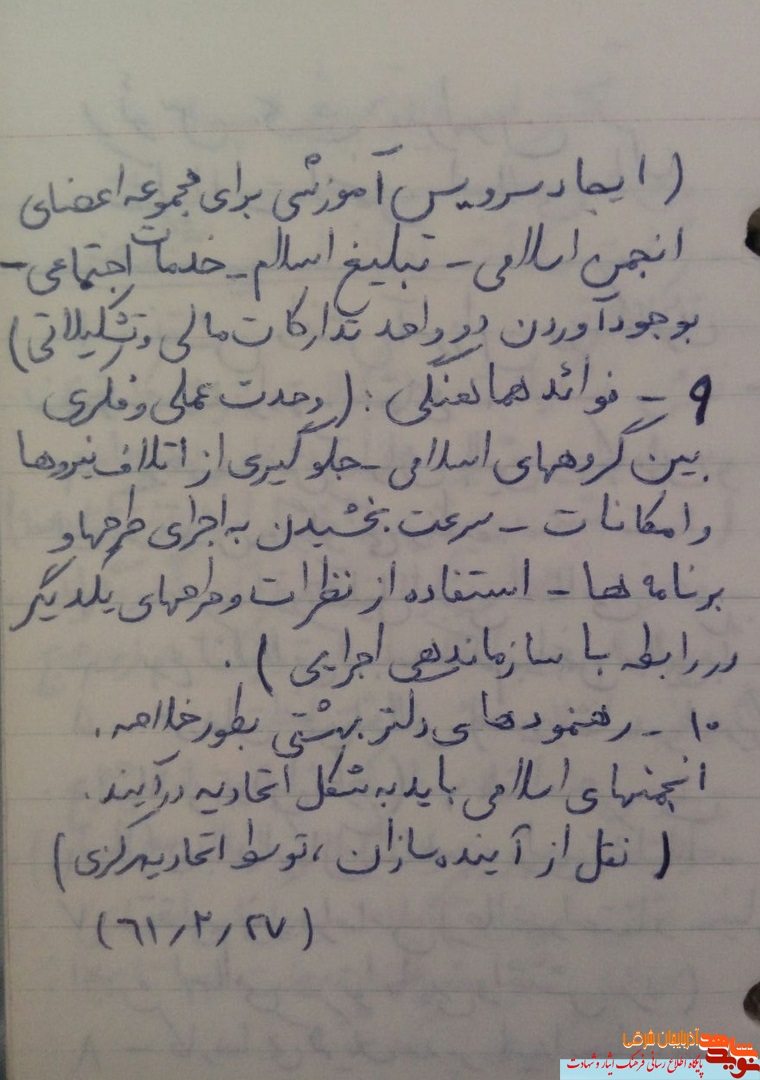 ( ایجاد سرویس آموزشی برای مجموعه اعضای
انجمن اسلامی - تبلیغ اسلام - خدمات اجتماعی -
بوجود آوردن دو واحد تدارکات مالی و تشکیلاتی )
۹ - فوائد هماهنگی : ( وحدت عملی و فکری
بین گروههای اسلامی - جلوگیری از اتلاف نیروها
و امکانات - سرعت بخشیدن به اجرای طرحها و
برنامه ها - استفاده از نظرات و طرحهای یکدیگر
در رابطه با سازماندهی اجرایی ) .
۱۰ - رهنمودهای دکتر بهشتی بطور خلاصه .
انجمنهای اسلامی باید به شکل اتحادیه درآیند .
( نقل از آینده سازان ، توسط اتحادیه مرکزی )
( ۶۱/۲/۲۷ )
نوید شاهد آذربایجان شرقی
پایگاه اطلاع رسانی فرهنگ ایثار و شهادت